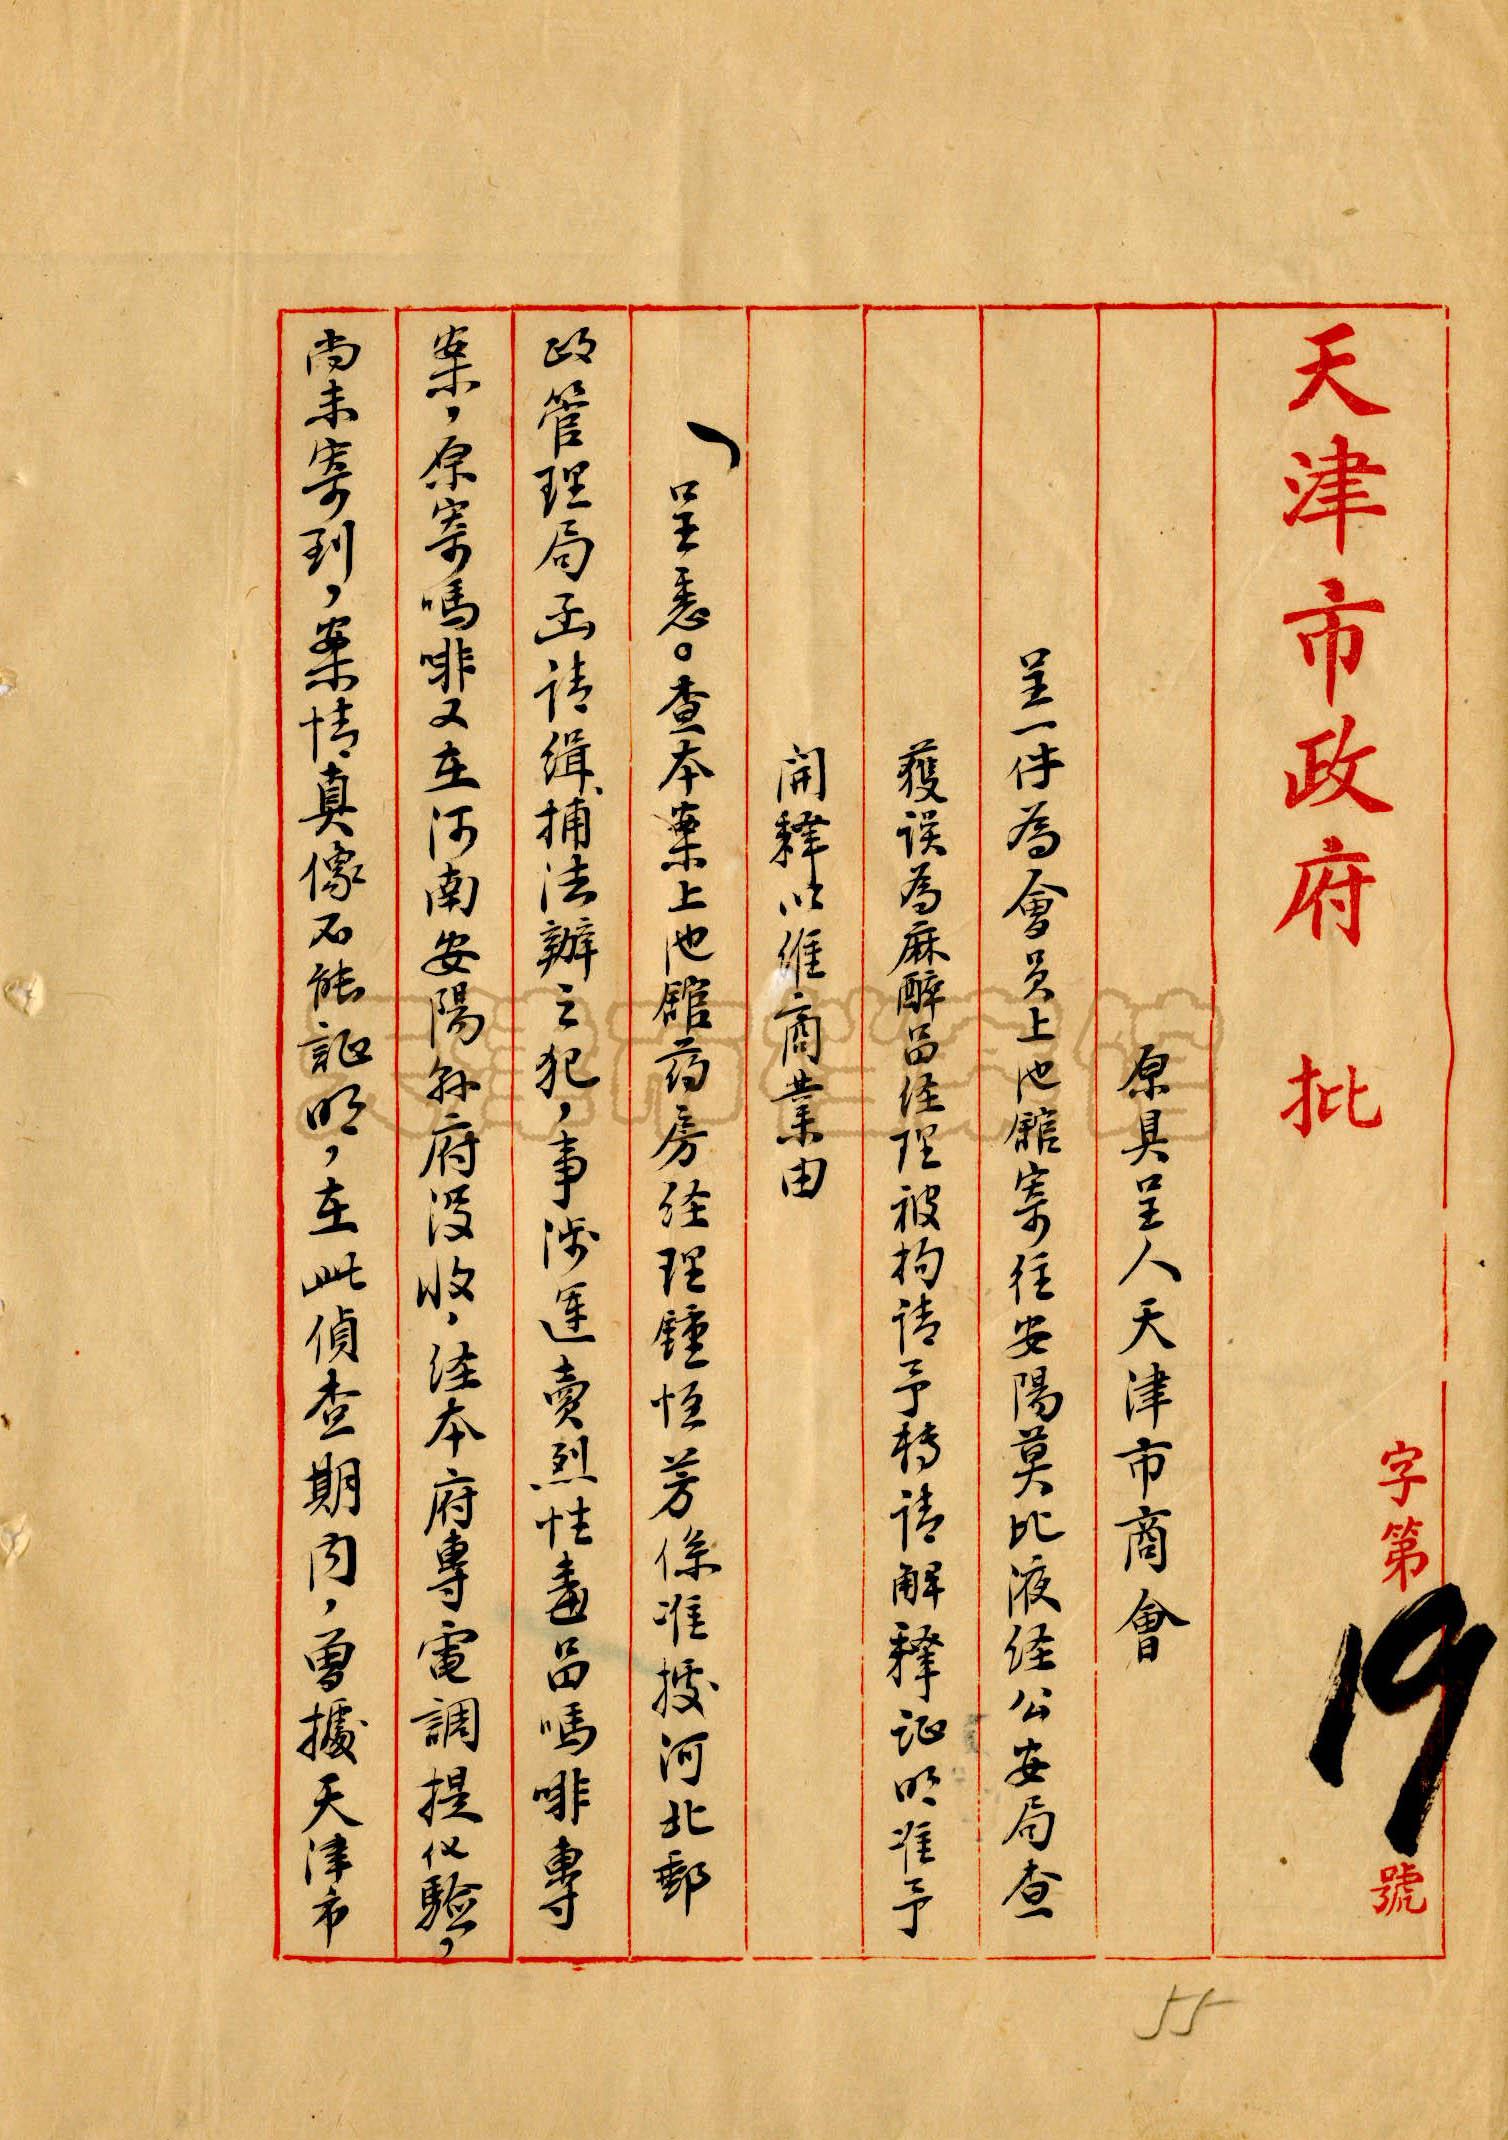 天津市政府 批
字第19號
原具呈人天津市商會
呈一件為會員上池館寄往安陽莫比液経公安局查
獲误為麻醉品経理被拘請予轉請解釋证明准予
開釋以維商業由
呈悉。查本案上池館药房経理鍾恒芳係准据河北郵
政管理局函請緝捕法辦之犯，事涉運賣烈性毒品嗎啡專
案，原寄嗎啡又在河南安陽縣府没收，経本府專電調提化驗，
尚未寄到，案情真像不能証明，在此偵查期内，曾據天津市
55